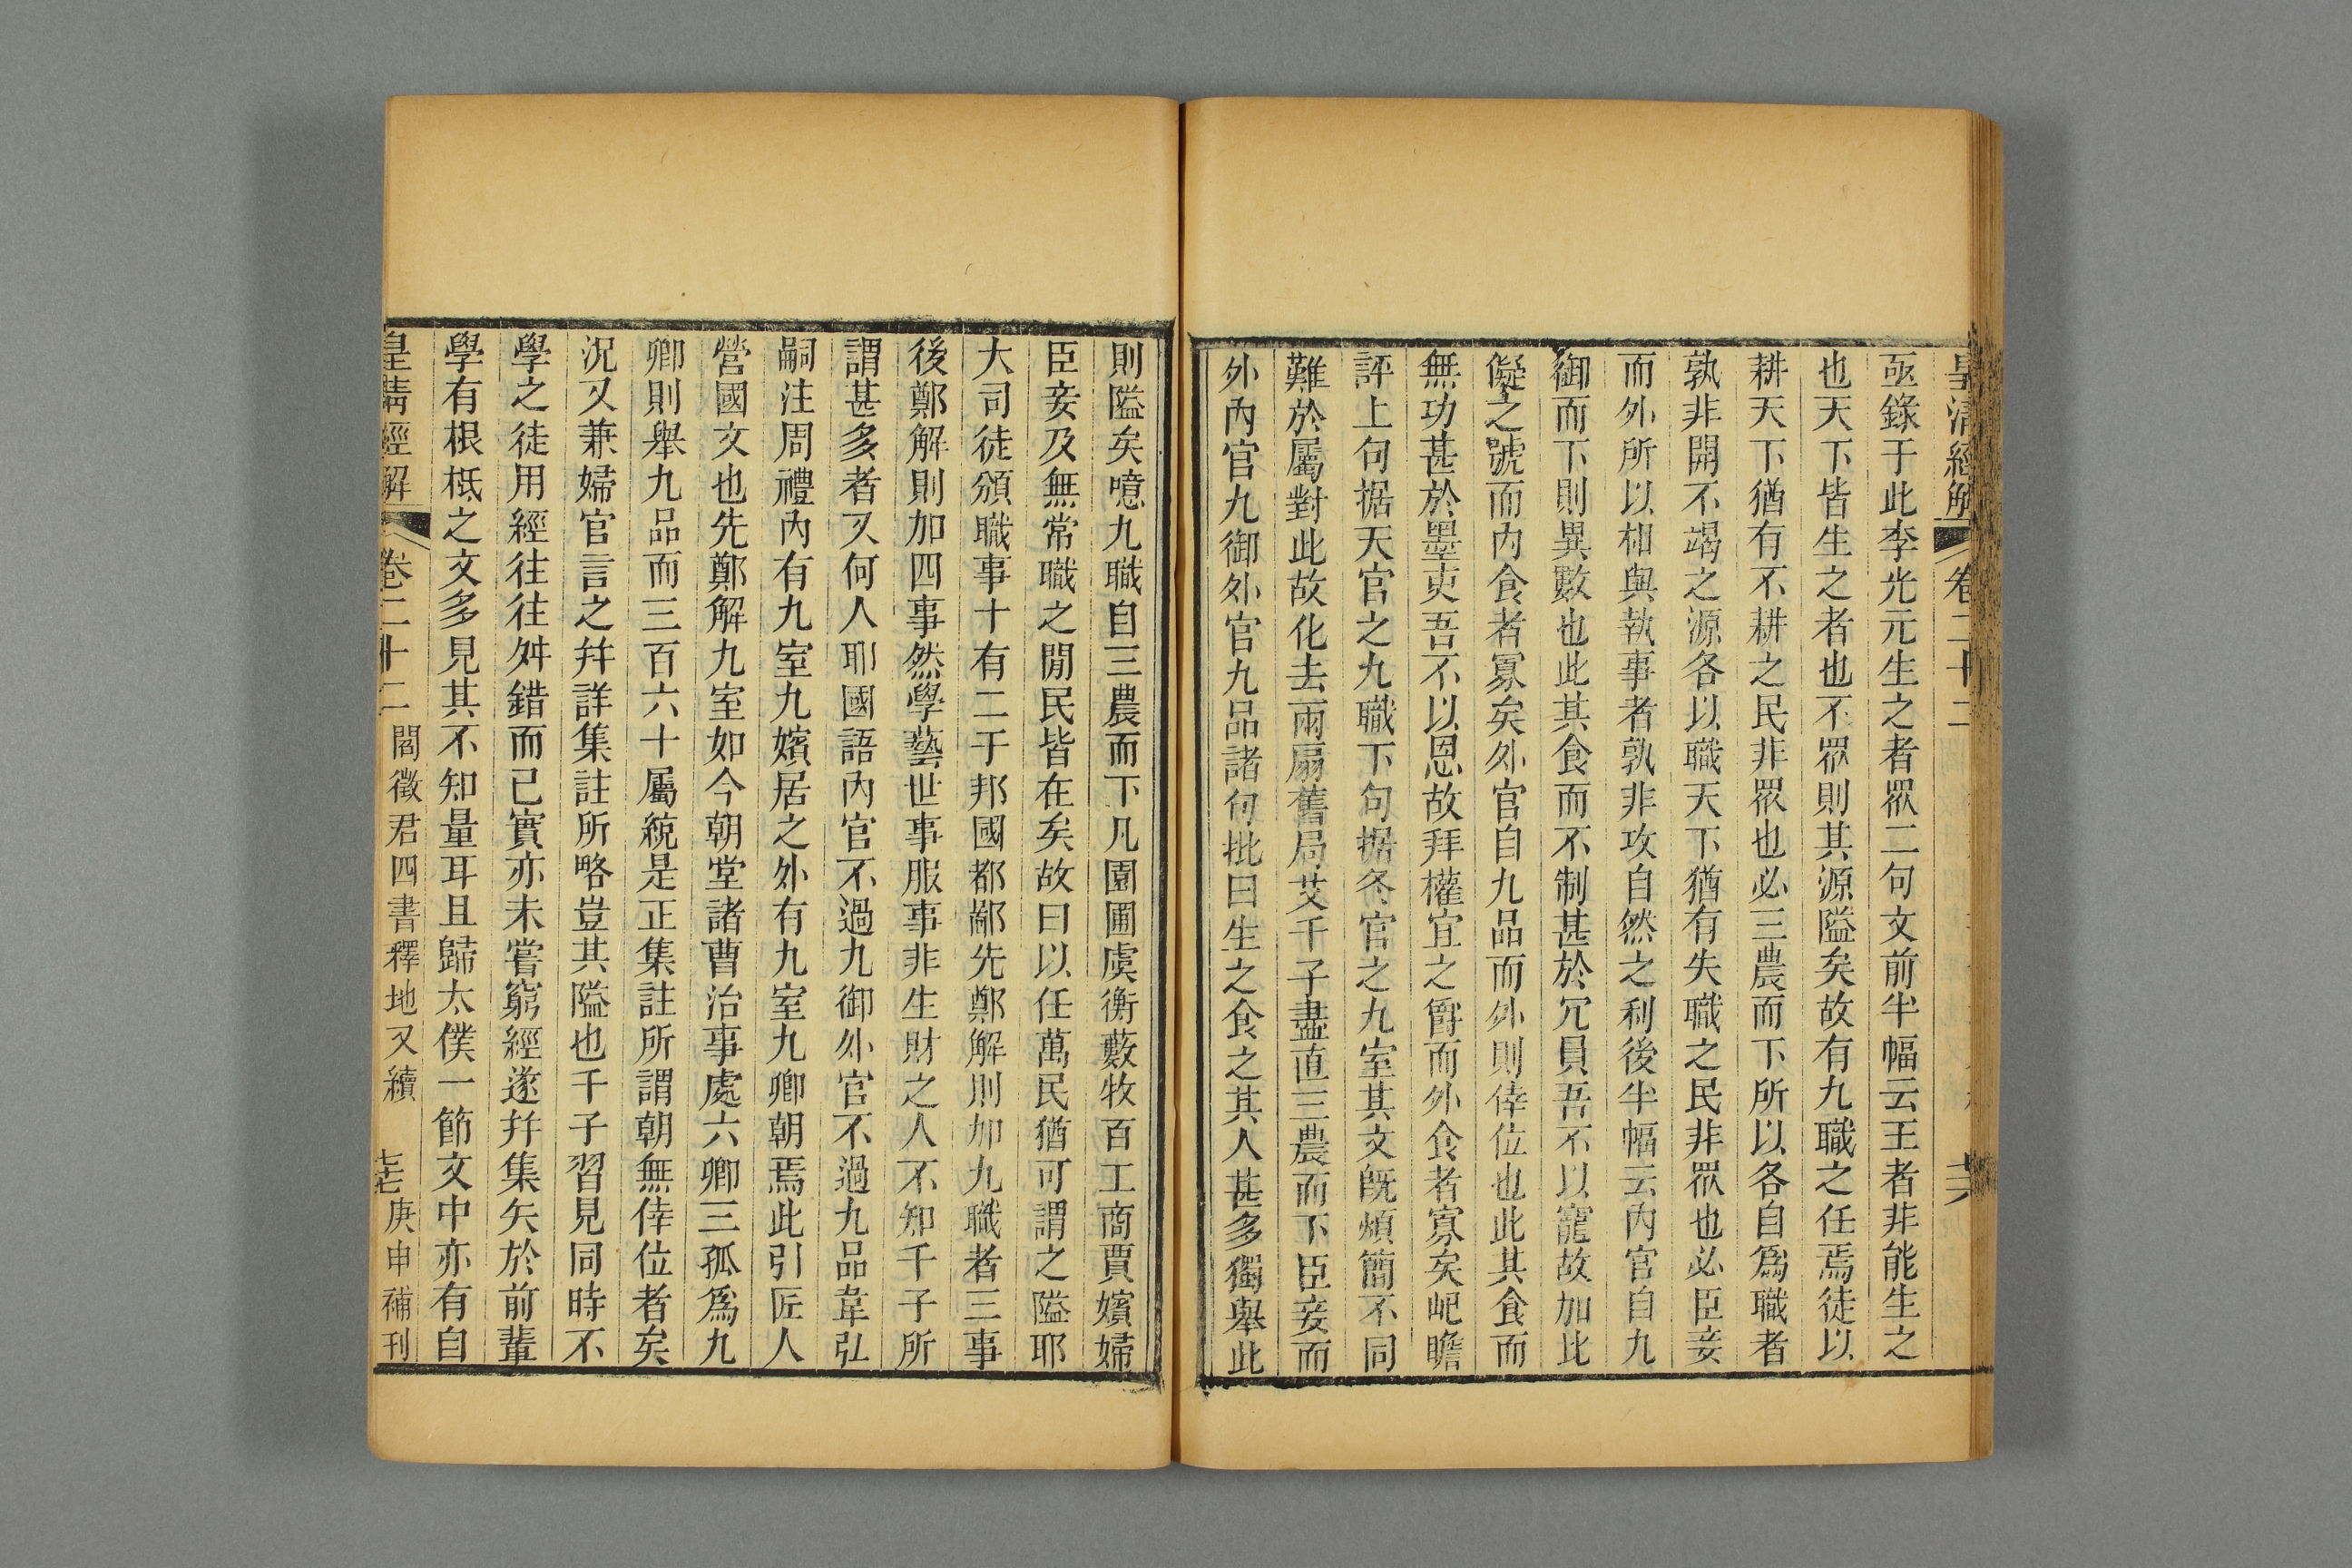 皇清經解 卷二十二
亟錄于此李光元生之者眾二句文前半幅云王者非能生之
也天下皆生之者也不眾則其源隘矣故有九職之任焉徒以
耕天下猶有不耕之民非眾也必三農而下所以各自爲職者
孰非開不竭之源各以職天下猶有失職之民非眾也必臣妾
而外所以相與執事者孰非攻自然之利後半幅云內官自九
御而下則異數也此其食而不制甚於冗員吾不以寵故加比
儗之號而內食者寡矣外官自九品而外則倖位也此其食而
無功甚於墨吏吾不以恩故拜權宜之爵而外食者寡矣屺瞻
評上句据天官之九職下句据冬官之九室其文旣煩簡不同
難於屬對此故化去兩扇舊局艾千子盡直三農而下臣妾而
外內官九御外官九品諸句批曰生之食之其人甚多獨舉此
則隘矣噫九職自三農而下凡園圃虞衡藪牧百工商賈嬪婦
臣妾及無常職之閒民皆在矣故曰以任萬民猶可謂之隘耶
大司徒頒職事十有二于邦國都鄙先鄭解則加九職者三事
後鄭解則加四事然學藝世事服事非生財之人不知千子所
謂甚多者又何人耶國語內官不過九御外官不過九品韋弘
嗣注周禮內有九室九嬪居之外有九室九卿朝焉此引匠人
營國文也先鄭解九室如今朝堂諸曹治事處六卿三孤爲九
卿則舉九品而三百六十屬統是正集註所謂朝無倖位者矣
況又兼婦官言之幷詳集註所略豈其隘也千子習見同時不
學之徒用經往往舛錯而已實亦未嘗窮經遂幷集矢於前輩
學有根柢之文多見其不知量耳且歸太僕一節文中亦有自
皇清經解 卷二十二 閻徵君四書釋地又續 庚申補刊